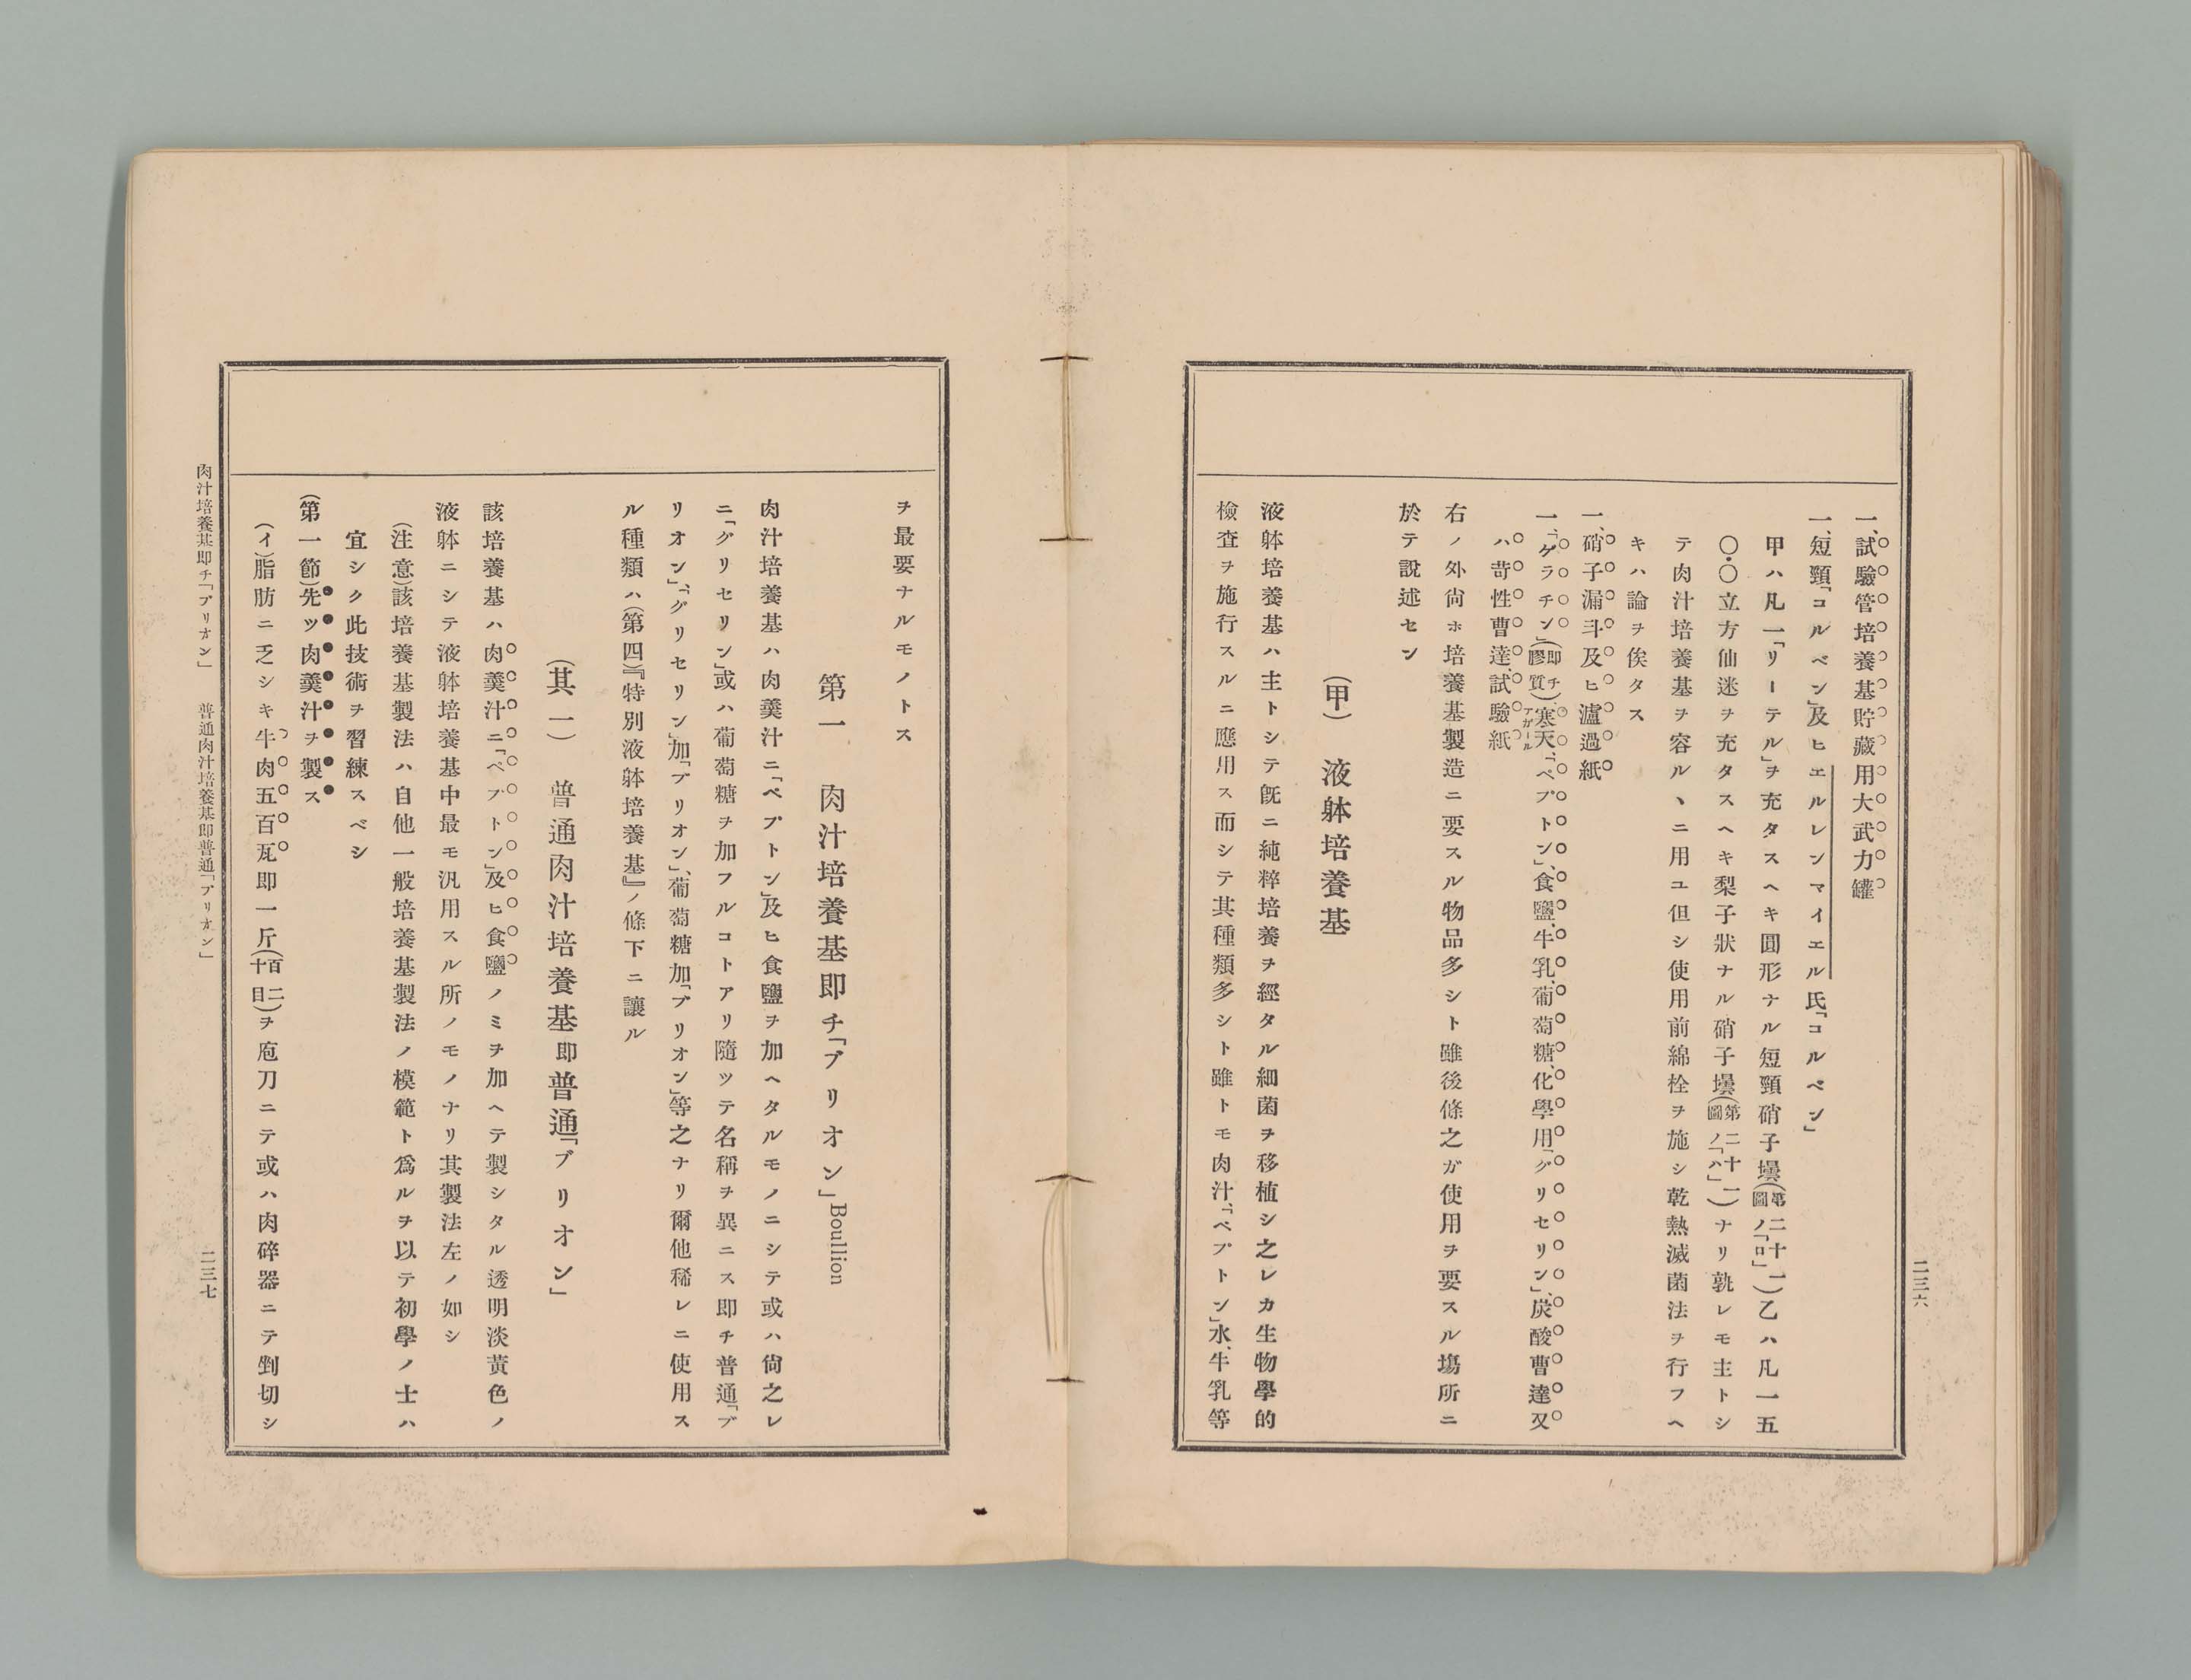 一、試驗管培養基貯藏用大武力罐
一、短頸「コルベン」及ヒエルレンマイエル氏「コルベン」
甲ハ凡一「リーテル」ヲ充タスヘキ圓形ナル短頸硝子壜(第二十一圖ノ「ロ」)乙ハ凡一五
〇.〇立方仙迷ヲ充タスヘキ梨子狀ナル硝子壜(第二十一圖ノ「ハ」)ナリ孰レモ主トシ
テ肉汁培養基ヲ容ルヽニ用ユ但シ使用前綿栓ヲ施シ乾熱滅菌法ヲ行フヘ
キハ論ヲ俟タス
一、硝子漏斗及ヒ瀘過紙
一、「ゲラチン」(即チ膠質)寒天アガール、「ペプトン」、食鹽、牛乳、葡萄糖、化學用「グリセリン」、炭酸曹達又
ハ苛性曹達、試驗紙
右ノ外尙ホ培養基製造ニ要スル物品多シト雖後條之ガ使用ヲ要スル塲所ニ
於テ說述セン
(甲) 液躰培養基
液躰培養基ハ主トシテ旣ニ純粹培養ヲ經タル細菌ヲ移植シ之レカ生物學的
檢査ヲ施行スルニ應用ス而シテ其種類多シト雖トモ肉汁、「ペプトン」水、牛乳等
二三六
ヲ最要ナルモノトス
第一 肉汁培養基即チ「ブリオン」Boullion
肉汁培養基ハ肉羹汁ニ「ペプトン」及ヒ食鹽ヲ加ヘタルモノニシテ或ハ尙之レ
ニ「グリセリン」或ハ葡萄糖ヲ加フルコトアリ隨ツテ名稱ヲ異ニス即チ普通「ブ
リオン」、「グリセリン」加「ブリオン」、葡萄糖加「ブリオン」等之ナリ爾他稀レニ使用ス
ル種類ハ(第四)『特別液躰培養基』ノ條下ニ讓ル
(其一) 普通肉汁培養基即普通「ブリオン」
該培養基ハ肉羹汁ニ「ペプトン」及ヒ食鹽ノミヲ加ヘテ製シタル透明淡黃色ノ
液躰ニシテ液躰培養基中最モ汎用スル所ノモノナリ其製法左ノ如シ
(注意)該培養基製法ハ自他一般培養基製法ノ模範ト爲ルヲ以テ初學ノ士ハ
宜シク此技術ヲ習練スベシ
(第一節)先ツ肉羹汁ヲ製ス
(イ)脂肪ニ乏シキ牛肉五百瓦即一斤(百二十目)ヲ庖刀ニテ或ハ肉碎器ニテ剉切シ
肉汁培養基即チ「ブリオン」 普通肉汁培養基即普通「ブリオン」
二三七